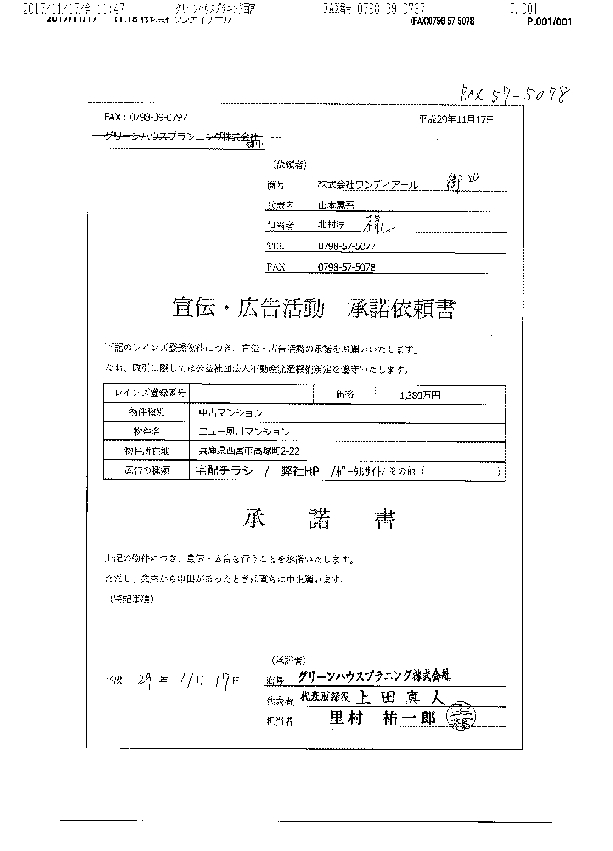 2017/11/17/金 11:47 グリーンハウスプランニング西宮 FAX番号 0798-39-0797 P.001
2017/11/17 (FAX)0798 57 5078 P.001/001
FAX 57-5078
FAX：0798-39-0797
平成29年11月17日
グリーンハウスプランニング株式会社
御中
（依頼者）
商号 株式会社ワンディアール 御中
代表者
担当者 北村
TEL 0798-57-5077
FAX 0798-57-5078
宣伝・広告活動　承諾依頼書
下記のレインズ登録物件につき、宣伝・広告活動の承諾をお願いいたします。
なお、取引に際しては公益社団法人不動産流通機構規定を遵守いたします。
レインズ登録番号 価格 1,380万円
物件種別 中古マンション
物件名 ニュー夙川マンション
物件所在地 兵庫県西宮市高塚町2-22
広告の種類 宅配チラシ / 弊社HP /ポータルサイト/その他（ ）
承　諾　書
上記の物件につき、宣伝・広告を行うことを承諾いたします。
ただし、売主から申出があったときは直ちに中止願います。
（特記事項）
平成 29 年 11 月 17 日
（承諾者）
商号 グリーンハウスプラニング株式会社
代表者 代表取締役 上田真人
担当者 里村 祐一郎